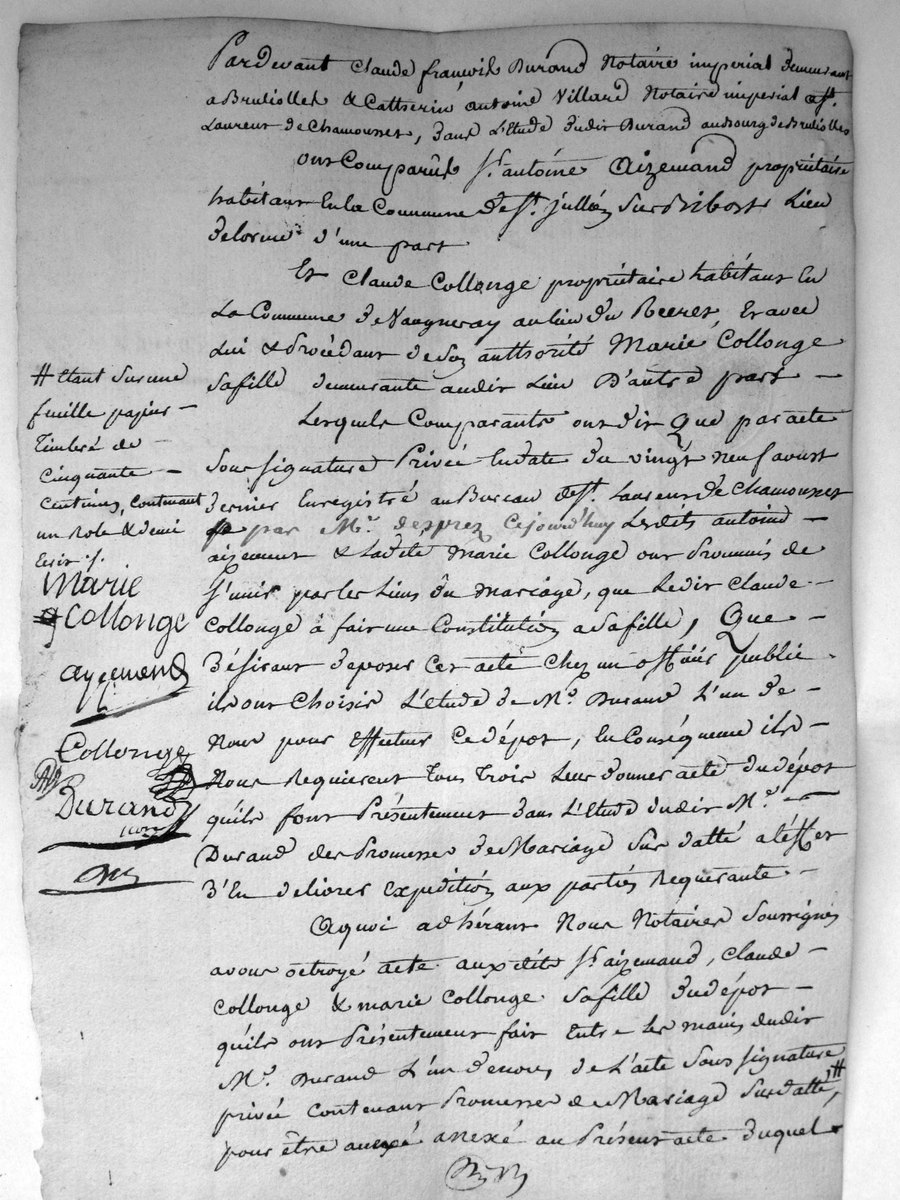 Pardevant Claude françois Durand Notaire imperial demeurant
a Brulliolles & Catherin antoine Villard Notaire imperial a St.
Laurent de Chamousset, dans L'Etude dudit Durand au Bourg de Brulolles
ont Comparûs Sr. antoine Aizemand propriétaire
habitant En la Commune de St. jullien Sur Bibost Lieu
d'une part
Et Claude Collonge propriétaire habitant En
La Commune de Vaugneray au lieu du Recret, Et avec
Lui & procédant de Son authorité Marie Collonge
Sa fille demeurante audit Lieu D'autre part –
Lesquels Comparants ont dit Que par acte
Sous Signature Privée En date du vingt neuf aoust
dernier Enregistré au Bureau de St. Laurent de Chamousset
par Mr. desprez Cejourd'huy Lesdits antoine –
aizemant & Ladite Marie Collonge ont Promis de
S'unir par les Liens du Mariage, que Ledit Claude –
Collonge à fait une Constitution a Sa fille, Que –
Désirant Déposer Cet acte Chez un officier public
ils ont Choisit L'étude de Me. Durand L'un de –
Nous pour Effectuer Ce dépot, En Conséquence ils –
Nous Requierent Tous Trois Leur donner acte du dépot
qu'ils font Présentement dans L'Etude dudit Me. –
Durand des Promesses de Mariage Sus datté a l'éffet
D'En delivrer Expedition aux partiés Requerante –
Aquoi adhérant Nous Notaires Soussignés
avons octroyé acte auxdits Sr. aizemand, Claude –
Collonge & marie Collonge Sa fille du dépot –
qu'ils ont Présentement fait Entre les mains dudit
Me. Durand L'un de nous, de L'acte Sous Signature
privée Contenant Promesses de Mariage Sus datté, #
pour être anexé au Présent acte duquel
# Etant Sur une
feuille papier –
Timbré de –
Cinquante –
Centimes, Contenant
un Role & demi
Ecrit ./.
Marie
Collonge
ayzemand
Collonge
Durand